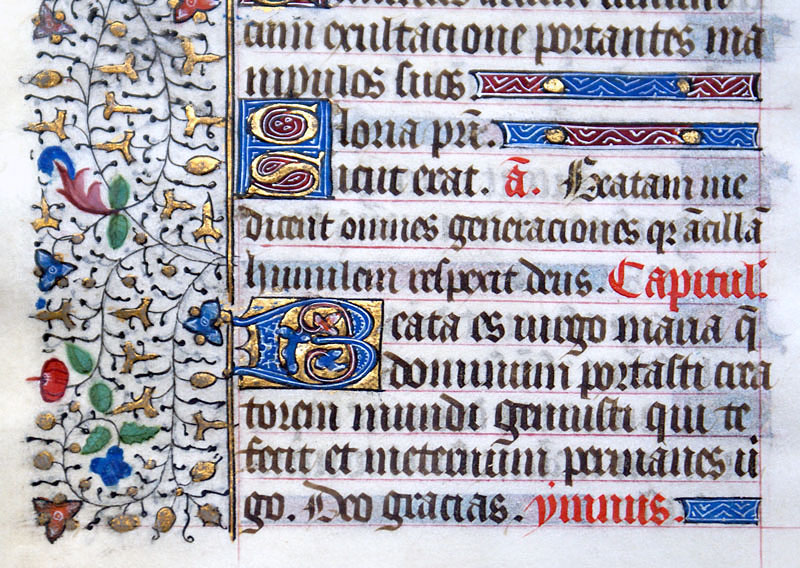 cum exultacione portantes ma
nipulos suos
Gloria pr̄i.
Sicut erat. ā. Beatam me
dicent omnes generaciones qr ācillā
humilem respexit deus. Capitul'.
Beata es uirgo maria q̄
dominum portasti crea
torem mundi genuisti qui te
fecit et ineternum permanes ui
go. Deo gracias. ymnus.